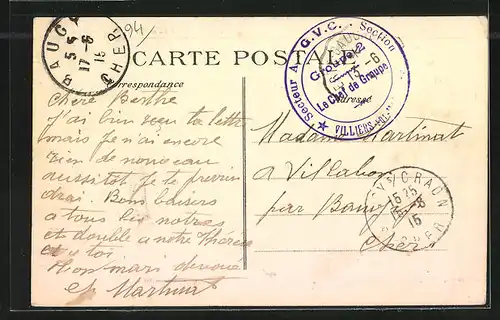 BAUGY
5 5
17-6
15
CHER
94/
CARTE POSTALE
Correspondance
Adresse
G.V.C. Section
Secteur A
Groupe 2
Le Chef de Groupe
VILLIERS
Chère Berthe
J'ai bien reçu ta lettre
mais je n'ai encore
rien de nouveau
aussitot je te previen
drai. Bons baisers
à tous les notres
et double a notre Thérèse
et a toi
Ton mari dévoué
Martinat
Madame Martinat
a Villabon
par Baugy
Cher
15 25
16-6
15
CHER